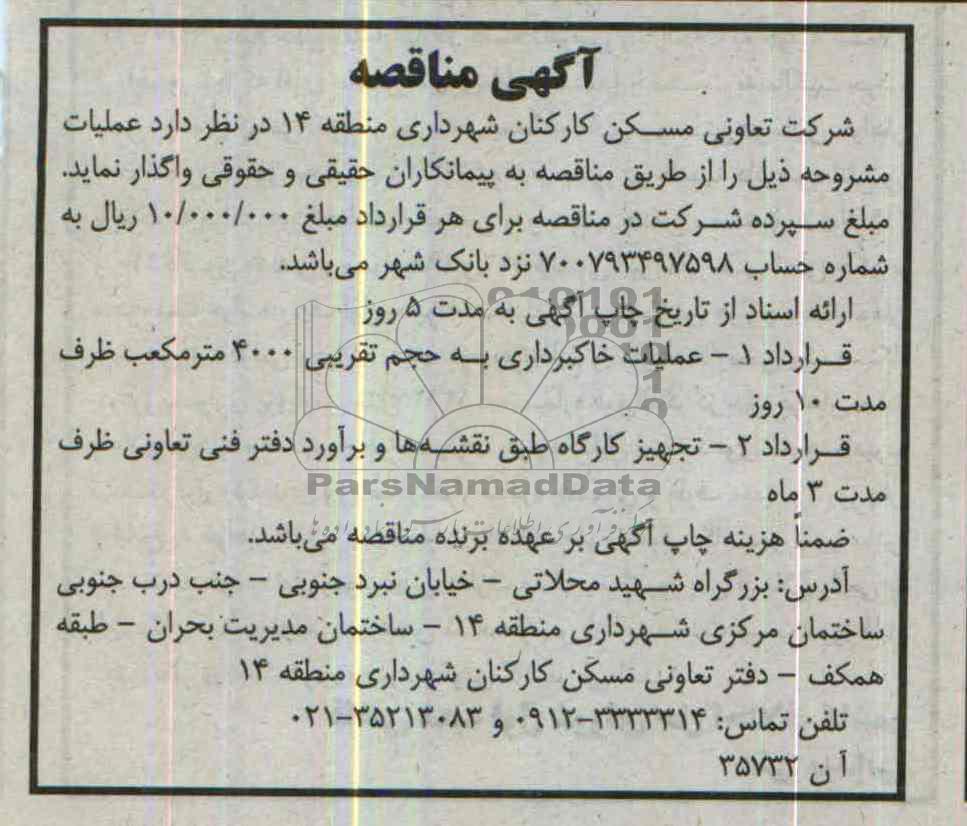 آگهی مناقصه
شرکت تعاونی مسکن کارکنان شهرداری منطقه ۱۴ در نظر دارد عملیات
مشروحه ذیل را از طریق مناقصه به پیمانکاران حقیقی و حقوقی واگذار نماید.
مبلغ سپرده شرکت در مناقصه برای هر قرارداد مبلغ ۱۰/۰۰۰/۰۰۰ ریال به
شماره حساب ۷۰۰۷۹۳۴۹۷۵۹۸ نزد بانک شهر می‌باشد.
ارائه اسناد از تاریخ چاپ آگهی به مدت ۵ روز
قرارداد ۱ – عملیات خاکبرداری به حجم تقریبی ۴۰۰۰ مترمکعب ظرف
مدت ۱۰ روز
قرارداد ۲ – تجهیز کارگاه طبق نقشه‌ها و برآورد دفتر فنی تعاونی ظرف
مدت ۳ ماه
ParsNamadData
ضمناً هزینه چاپ آگهی بر عهده برنده مناقصه می‌باشد.
آدرس: بزرگراه شهید محلاتی – خیابان نبرد جنوبی – جنب درب جنوبی
ساختمان مرکزی شهرداری منطقه ۱۴ – ساختمان مدیریت بحران – طبقه
همکف – دفتر تعاونی مسکن کارکنان شهرداری منطقه ۱۴
تلفن تماس: ۳۳۳۳۳۱۴–۰۹۱۲ و ۳۵۲۱۳۰۸۳–۰۲۱
آ ن ۳۵۷۳۲